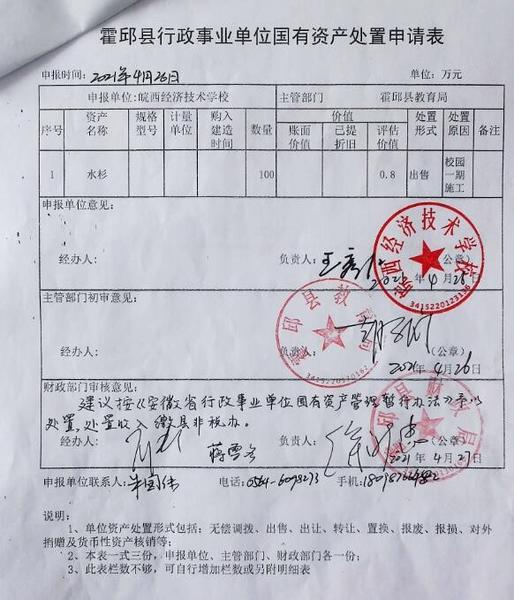 霍邱县行政事业单位国有资产处置申请表
申报时间：2021年4月26日 单位：万元
申报单位：皖西经济技术学校 主管部门 霍邱县教育局
序号 资产名称 规格型号 计量单位 购入建造时间 数量 价值 处置形式 处置原因 备注
账面价值 已提折旧 评估价值
1 水杉 100 0.8 出售 校园一期施工
申报单位意见：
皖西经济技术学校
3415220123156
经办人： 负责人： （公章）
4月25日
主管部门初审意见：
霍邱县教育局
经办人： 负责人： （公章）
2021年4月26日
财政部门审核意见：
建议按《安徽省行政事业单位国有资产管理暂行办法》予以
处置，处置收入缴县非税办。
经办人： 负责人： （公章）
2021年4月27日
申报单位联系人： 电话：0564-6098273 手机：
说明：
1、单位资产处置形式包括：无偿调拨、出售、出让、转让、置换、报废、报损、对外
捐赠及货币性资产核销等；
2、本表一式三份，申报单位、主管部门、财政部门各一份；
3、此表栏数不够，可自行增加栏数或另附明细表